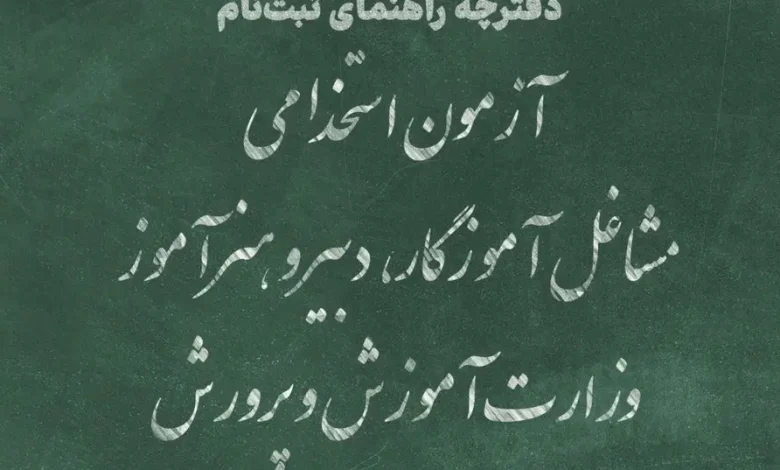 دفترچه راهنمای ثبت‌نام
آزمون استخدامی
مشاغل آموزگار، دبیر و هنرآموز
وزارت آموزش و پرورش